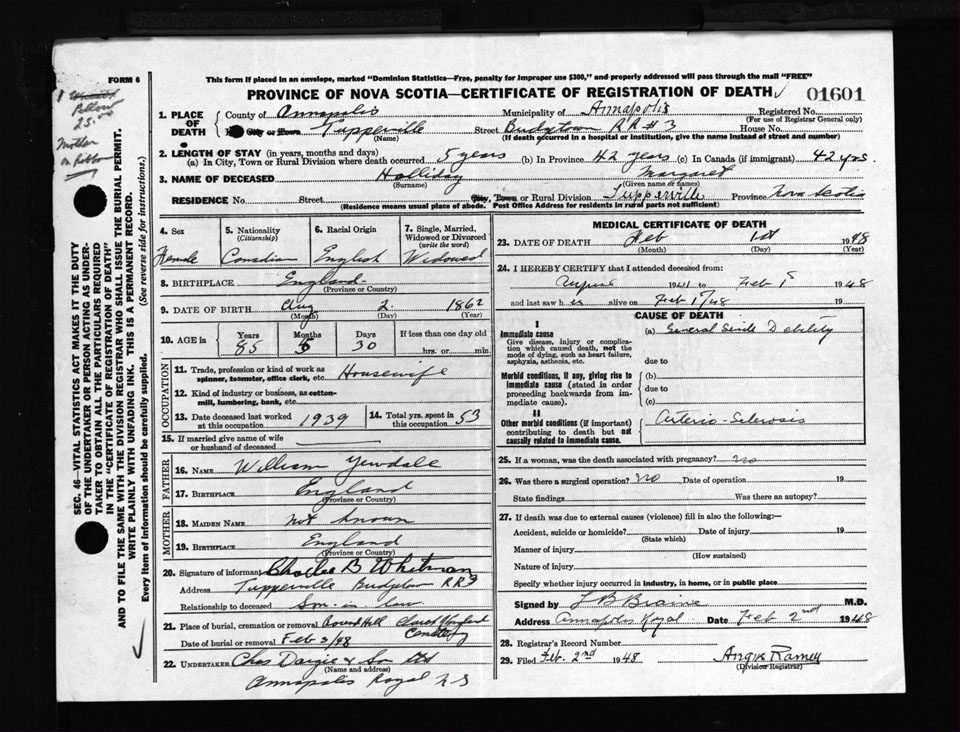 FORM 6
Pellow
25.00
Mother
This form if placed in an envelope, marked "Dominion Statistics—Free, penalty for improper use $300," and properly addressed will pass through the mail "FREE"
PROVINCE OF NOVA SCOTIA—CERTIFICATE OF REGISTRATION OF DEATH 01601
1. PLACE OF DEATH County of Annapolis Municipality of Annapolis Registered No.
(For use of Registrar General only)
City or Town Tupperville Street Bridgetown RR #3 House No.
(Name) (If death occurred in a hospital or institution, give the name instead of street and number)
2. LENGTH OF STAY (in years, months and days)
(a) In City, Town or Rural Division where death occurred 5 years (b) In Province 42 years (c) In Canada (if immigrant) 42 yrs.
3. NAME OF DECEASED Holliday Margaret
(Surname) (Given name or names)
RESIDENCE No. Street City, Town or Rural Division Tupperville Province Nova Scotia
(Residence means usual place of abode. Post Office Address for residents in rural parts not sufficient)
4. Sex Female
5. Nationality (Citizenship) Canadian
6. Racial Origin English
7. Single, Married, Widowed or Divorced (write the word) Widowed
8. BIRTHPLACE England
(Province or Country)
9. DATE OF BIRTH Aug 2. 1862
(Month) (Day) (Year)
10. AGE in Years Months Days If less than one day old
85 5 30 hrs. or min.
OCCUPATION
11. Trade, profession or kind of work as spinner, teamster, office clerk, etc. Housewife
12. Kind of industry or business, as cotton-mill, lumbering, bank, etc.
13. Date deceased last worked at this occupation 1939
14. Total yrs. spent in this occupation 53
15. If married give name of wife or husband of deceased
FATHER
16. NAME William Yewdale
17. BIRTHPLACE England
(Province or Country)
MOTHER
18. MAIDEN NAME Not known
19. BIRTHPLACE England
(Province or Country)
20. Signature of informant Charles B Whitman
Address Tupperville Bridgetown RR3
Relationship to deceased Son-in-law
21. Place of burial, cremation or removal Round Hill Cemetery
Date of burial or removal Feb 3/48
22. UNDERTAKER Chas Dargie & Son Ltd
(Name and address)
Annapolis Royal N S
MEDICAL CERTIFICATE OF DEATH
23. DATE OF DEATH Feb 1st 1948
(Month) (Day) (Year)
24. I HEREBY CERTIFY that I attended deceased from:
August 1941 to Feb 1st 1948
and last saw her alive on Feb 1st/48 19
CAUSE OF DEATH
I
Immediate cause (a) General Senile Debility
Give disease, injury or complication which caused death, not the mode of dying, such as heart failure, asphyxia, asthenia, etc. due to
Morbid conditions, if any, giving rise to immediate cause (stated in order proceeding backwards from immediate cause). (b)
due to
(c)
II
Other morbid conditions (if important) contributing to death but not causally related to immediate cause. Arterio-Sclerosis
25. If a woman, was the death associated with pregnancy? no
26. Was there a surgical operation? no Date of operation 19
State findings Was there an autopsy?
27. If death was due to external causes (violence) fill in also the following:—
Accident, suicide or homicide? Date of injury 19
(State which)
Manner of injury
(How sustained)
Nature of injury
Specify whether injury occurred in industry, in home, or in public place
Signed by L B Braine M.D.
Address Annapolis Royal Date Feb 2nd 1948
28. Registrar's Record Number
29. Filed Feb. 2nd 1948 Angus Ramey
(Division Registrar)
SEC. 46—VITAL STATISTICS ACT MAKES IT THE DUTY
OF THE UNDERTAKER OR PERSON ACTING AS UNDER-
TAKER TO OBTAIN ALL THE PARTICULARS REQUIRED
IN THE "CERTIFICATE OF REGISTRATION OF DEATH"
AND TO FILE THE SAME WITH THE DIVISION REGISTRAR WHO SHALL ISSUE THE BURIAL PERMIT.
WRITE PLAINLY WITH UNFADING INK. THIS IS A PERMANENT RECORD.
Every item of Information should be carefully supplied. (See reverse side for instructions.)